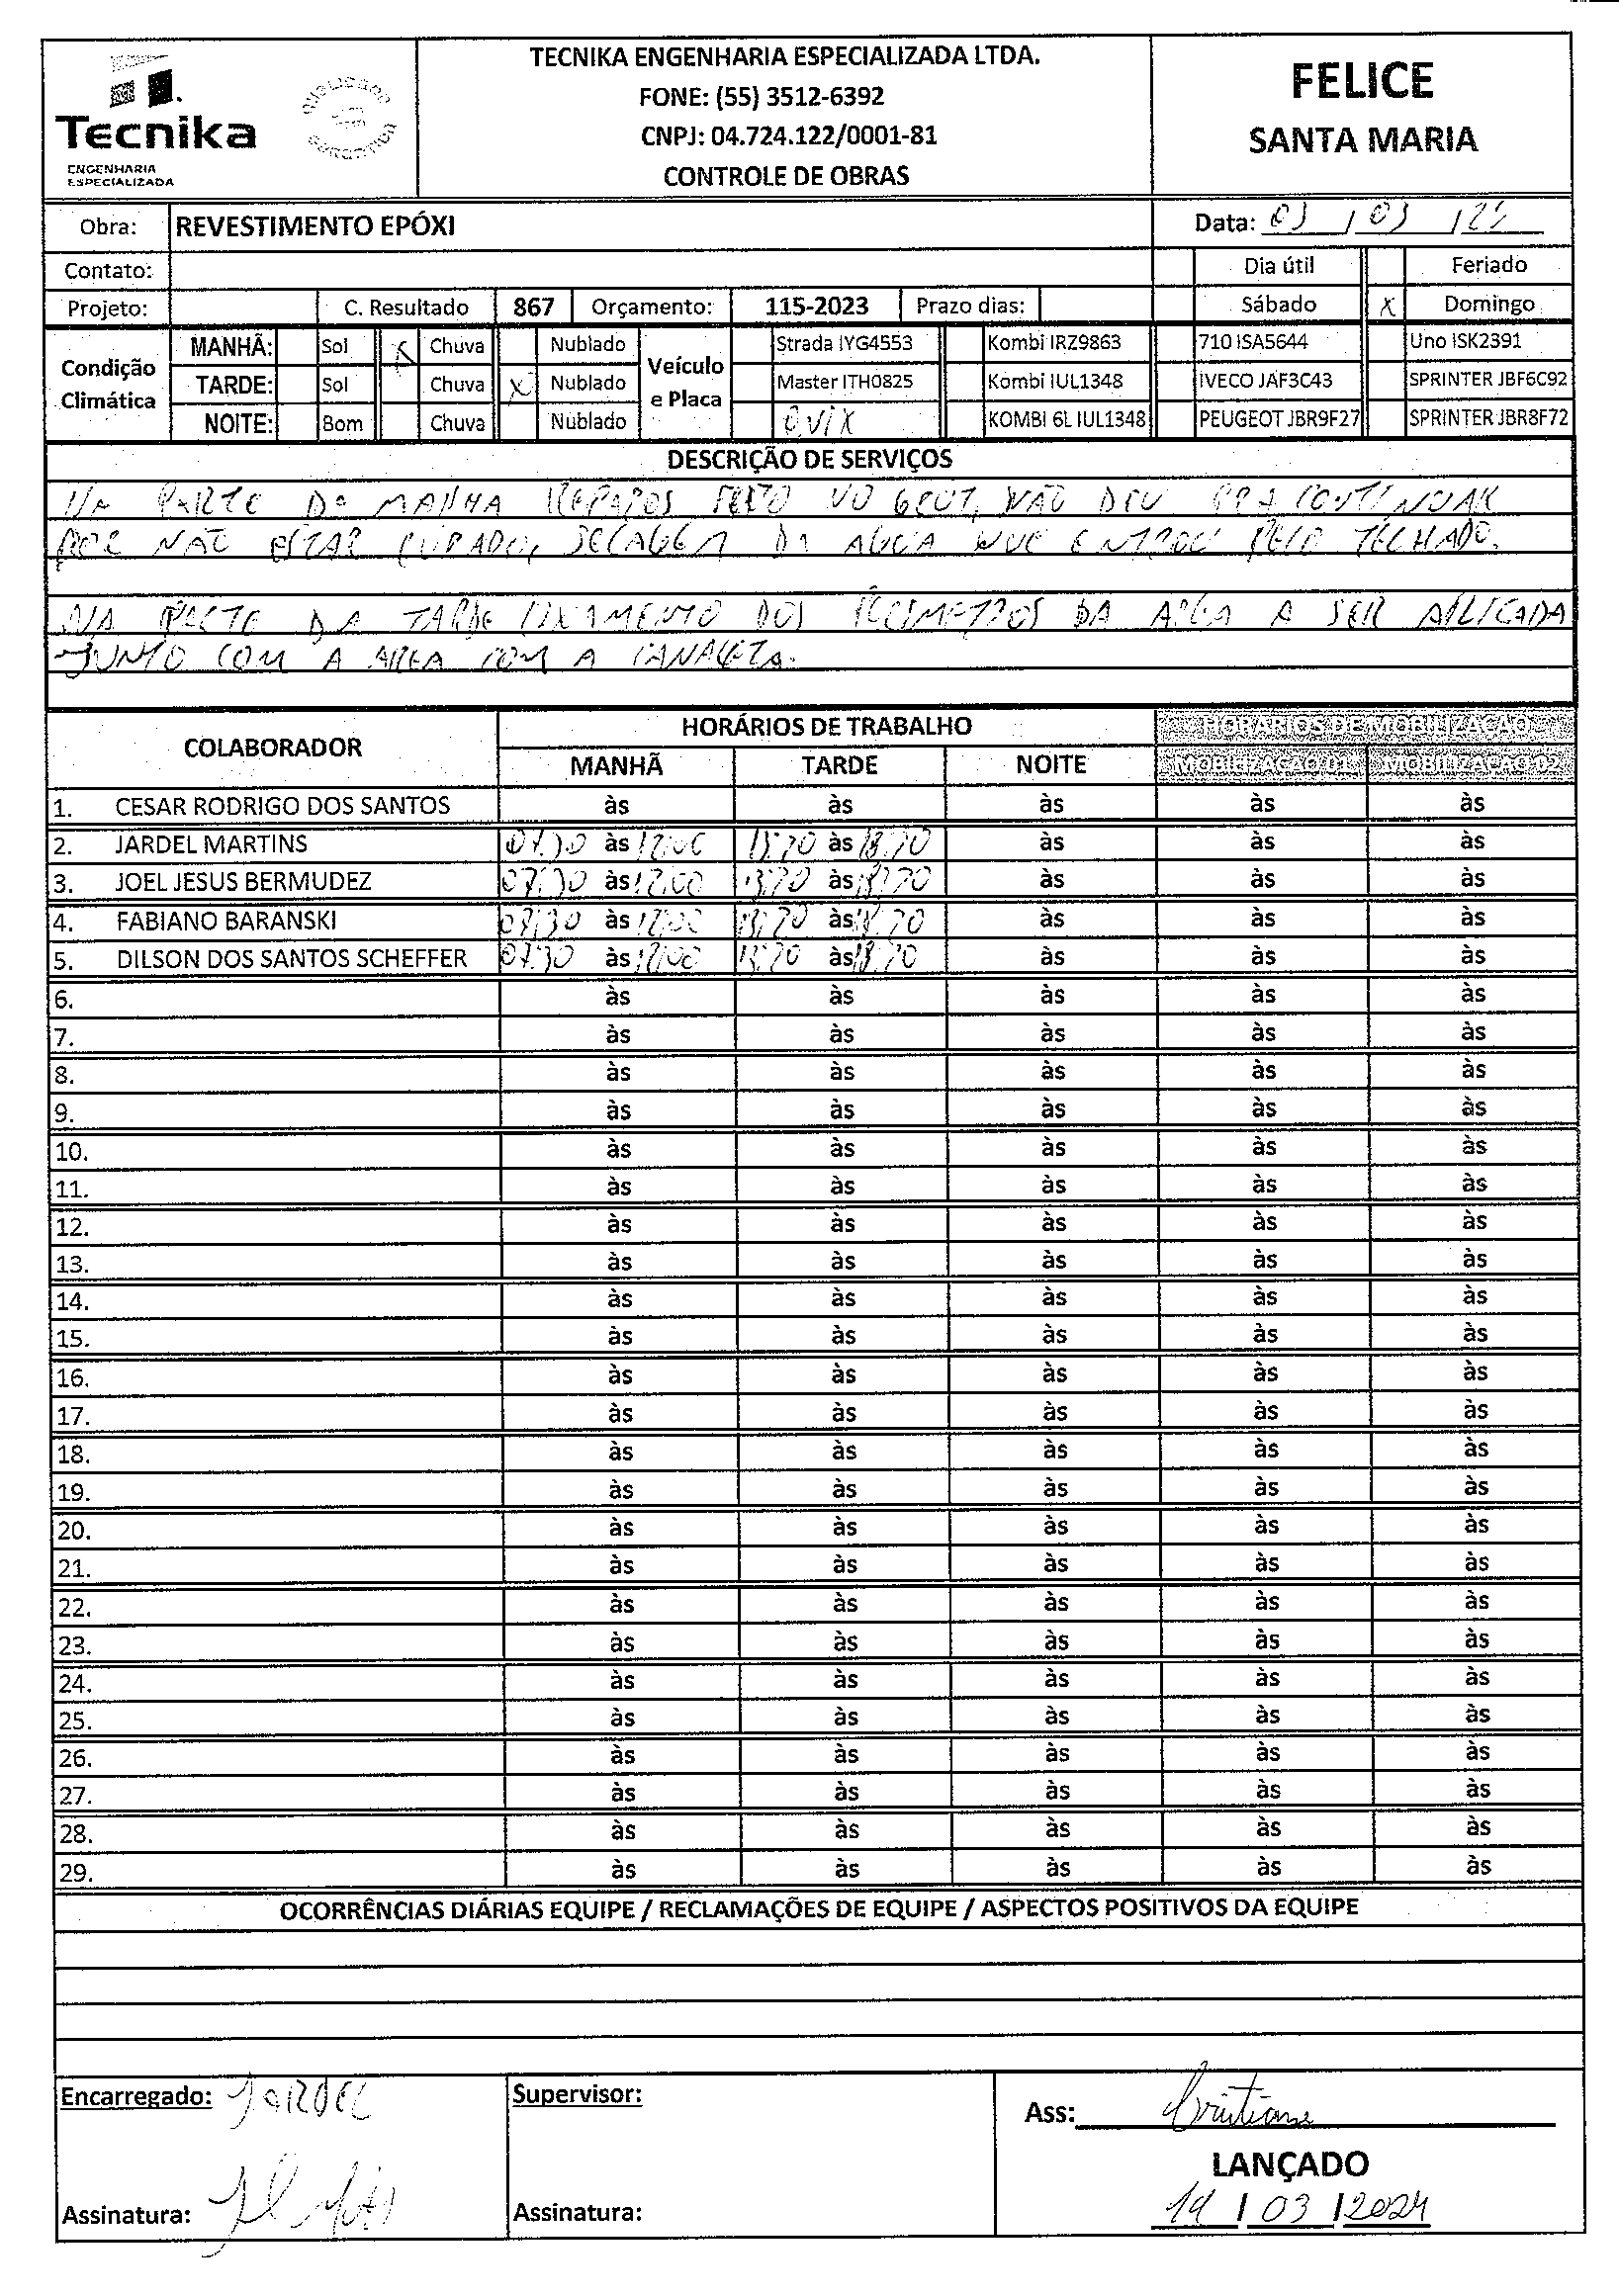 TECNIKA ENGENHARIA ESPECIALIZADA LTDA.
FONE: (55) 3512-6392
CNPJ: 04.724.122/0001-81
CONTROLE DE OBRAS
Tecnika
ENGENHARIA
ESPECIALIZADA
FELICE
SANTA MARIA
Obra: REVESTIMENTO EPÓXI
Data: 03 / 03 /
Contato:
Dia útil Feriado
Projeto: C. Resultado 867 Orçamento: 115-2023 Prazo dias: Sábado X Domingo
Condição Climática
MANHÃ: Sol X Chuva Nublado
TARDE: Sol Chuva X Nublado
NOITE: Bom Chuva Nublado
Veículo e Placa
Strada IYG4553 Kombi IRZ9863 710 ISA5644 Uno ISK2391
Master ITH0825 Kombi IUL1348 IVECO JAF3C43 SPRINTER JBF6C92
ONIX KOMBI 6L IUL1348 PEUGEOT JBR9F27 SPRINTER JBR8F72
DESCRIÇÃO DE SERVIÇOS
NA PARTE DA MANHA REPAROS FEITO NO GROUT, NÃO DEU PRA CONTINUAR
POR NÃO ESTAR CURADO, SECAGEM DA AGUA QUE ENTROU PELO TECHADO.
NA PARTE DA TARDE LIXAMENTO DOS PERIMETROS DA AREA A SER APLICADA
JUNTO COM A AREA COM A CANALETA.
COLABORADOR HORÁRIOS DE TRABALHO HORÁRIOS DE MOBILIZAÇÃO
MANHÃ TARDE NOITE MOBILIZAÇÃO 01 MOBILIZAÇÃO 02
1. CESAR RODRIGO DOS SANTOS às às às às às
2. JARDEL MARTINS 07:30 às 12:00 13:30 às 18:30 às às às
3. JOEL JESUS BERMUDEZ 07:30 às 12:00 13:30 às 18:30 às às às
4. FABIANO BARANSKI 07:30 às 12:00 13:30 às 18:30 às às às
5. DILSON DOS SANTOS SCHEFFER 07:30 às 12:00 13:30 às 18:30 às às às
6. às às às às às
7. às às às às às
8. às às às às às
9. às às às às às
10. às às às às às
11. às às às às às
12. às às às às às
13. às às às às às
14. às às às às às
15. às às às às às
16. às às às às às
17. às às às às às
18. às às às às às
19. às às às às às
20. às às às às às
21. às às às às às
22. às às às às às
23. às às às às às
24. às às às às às
25. às às às às às
26. às às às às às
27. às às às às às
28. às às às às às
29. às às às às às
OCORRÊNCIAS DIÁRIAS EQUIPE / RECLAMAÇÕES DE EQUIPE / ASPECTOS POSITIVOS DA EQUIPE
Encarregado: JARDEL
Supervisor:
Ass: Cristiane
LANÇADO
Assinatura:
Assinatura:
19 / 03 / 2024